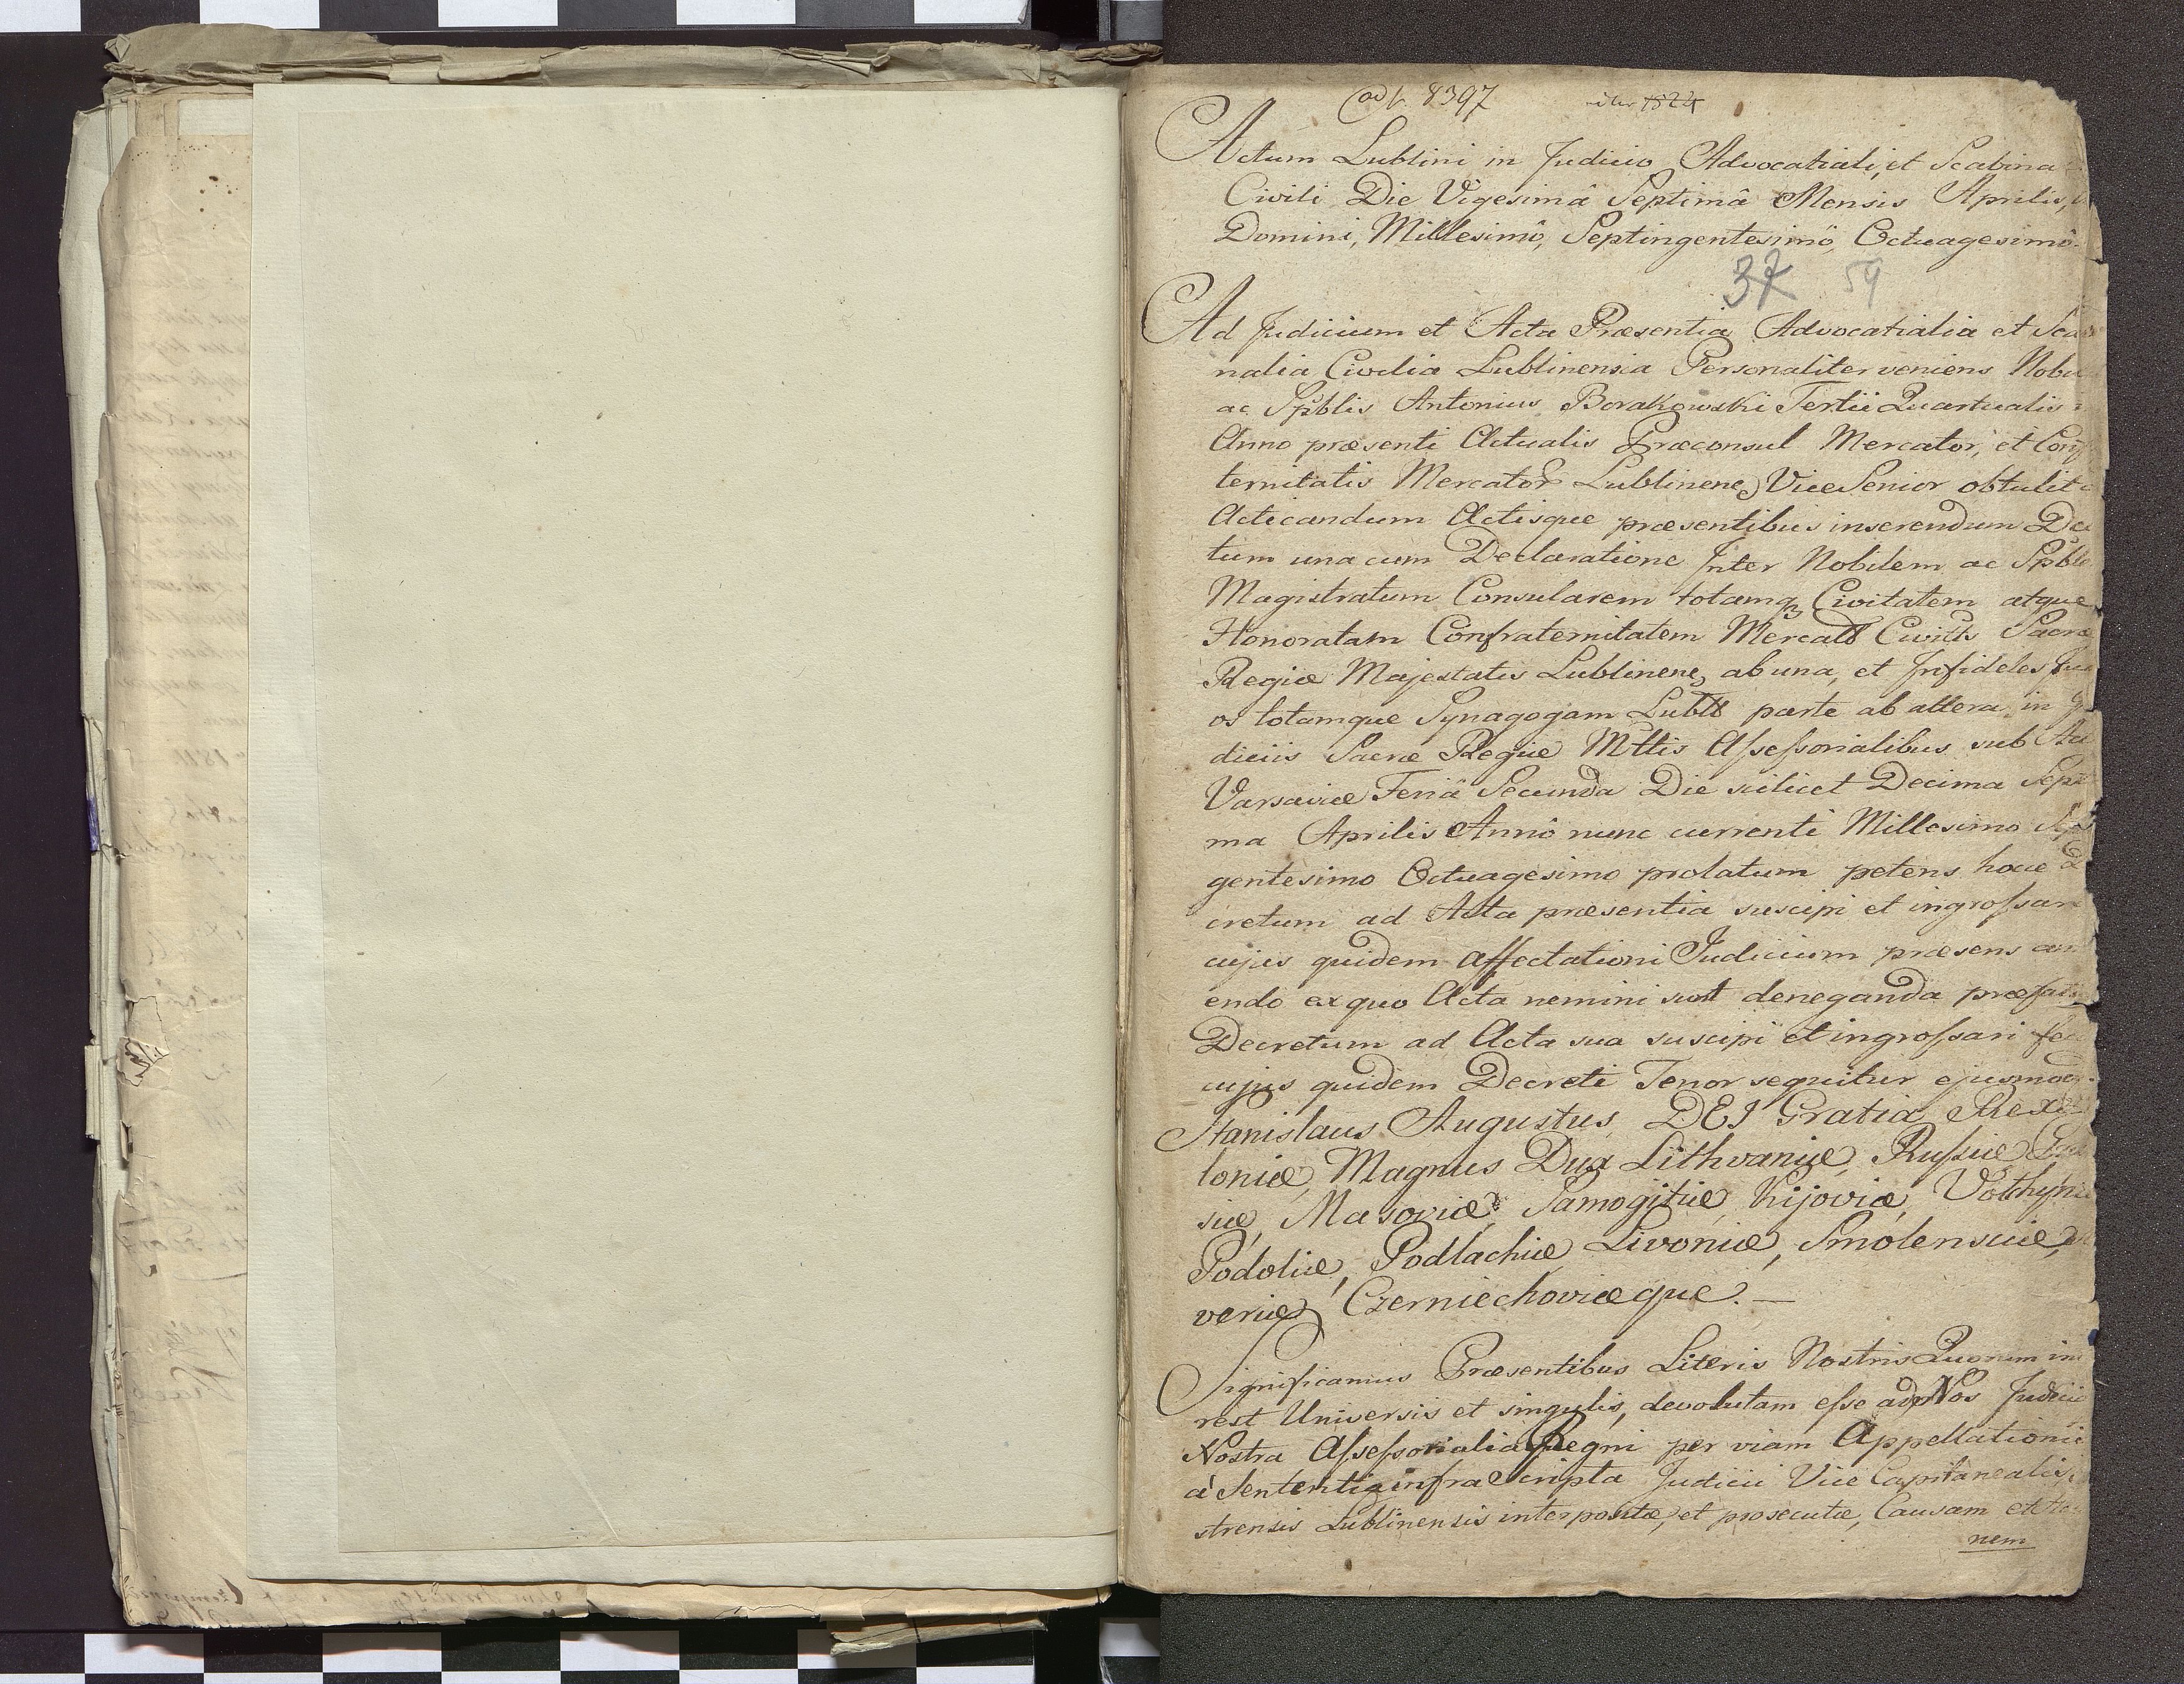 ad 8397 1824
Actum Lublini in Judicio Advocatiali, et Scabina
Civili Die Vigesimâ Septimâ Mensis Aprilis,
Domini, Millesimô, Septingentesimô, Octuagesimô
37 59
Ad Judicium et Acta Præsentia Advocatialia et Sca
nalia Civilia Lublinensia Personaliter veniens Nobi
ac Spblis Antonius Borakowski Tertii Quartualis
Anno præsenti Actualis Præconsul Mercator, et Conf
ternitatis Mercator Lublinens Vice Senior obtulit
Acticandum Actisque præsentibus inserendum De
tum una cum Declaratione Inter Nobilem ac Spble
Magistratum Consularem totamq Civitatem atque
Honoratam Confraternitatem Mercat Civitts Sacræ
Regiæ Majestatis Lublinens ab una, et Infideles Jud
os totamque Synagogam Lubl parte ab altera in
diciis Sacræ Regiæ Mttis Assessorialibus sub Ac
Varsaviæ Feriâ Secunda Die scilicet Decima Sept
ma Aprilis Annô nunc currenti Millesimo Sep
gentesimo Octuagesimo prolatum petens hocce De
cretum ad Acta præsentia suscipi et ingrossari
cujus quidem affectationi Judicium præsens an
endo ex quo Acta nemini sunt deneganda præfat
Decretum ad Acta sua suscipi et ingrossari fec
cujus quidem Decreti Tenor sequitur ejusmod
Stanislaus Augustus DEI Gratia Rex
loniæ, Magnus Dux Lithvaniæ, Russiæ
siæ, Masoviæ, Samogitiæ, Kijoviæ, Volhyni
Podoliæ, Podlachiæ Livoniæ, Smolensciæ,
veriæ, Czerniechoviæque. —
Significamus Præsentibus Literis Nostris Quorum in
rest Universis et singulis, devolutam esse ad Nos Judici
Nostra Assessorialia Regni per viam Appellationis
à Sententia infra Scripta Judicii Vice Capitanealis
strensis Lublinensis interpositæ, et prosecutæ, Causam et
nem